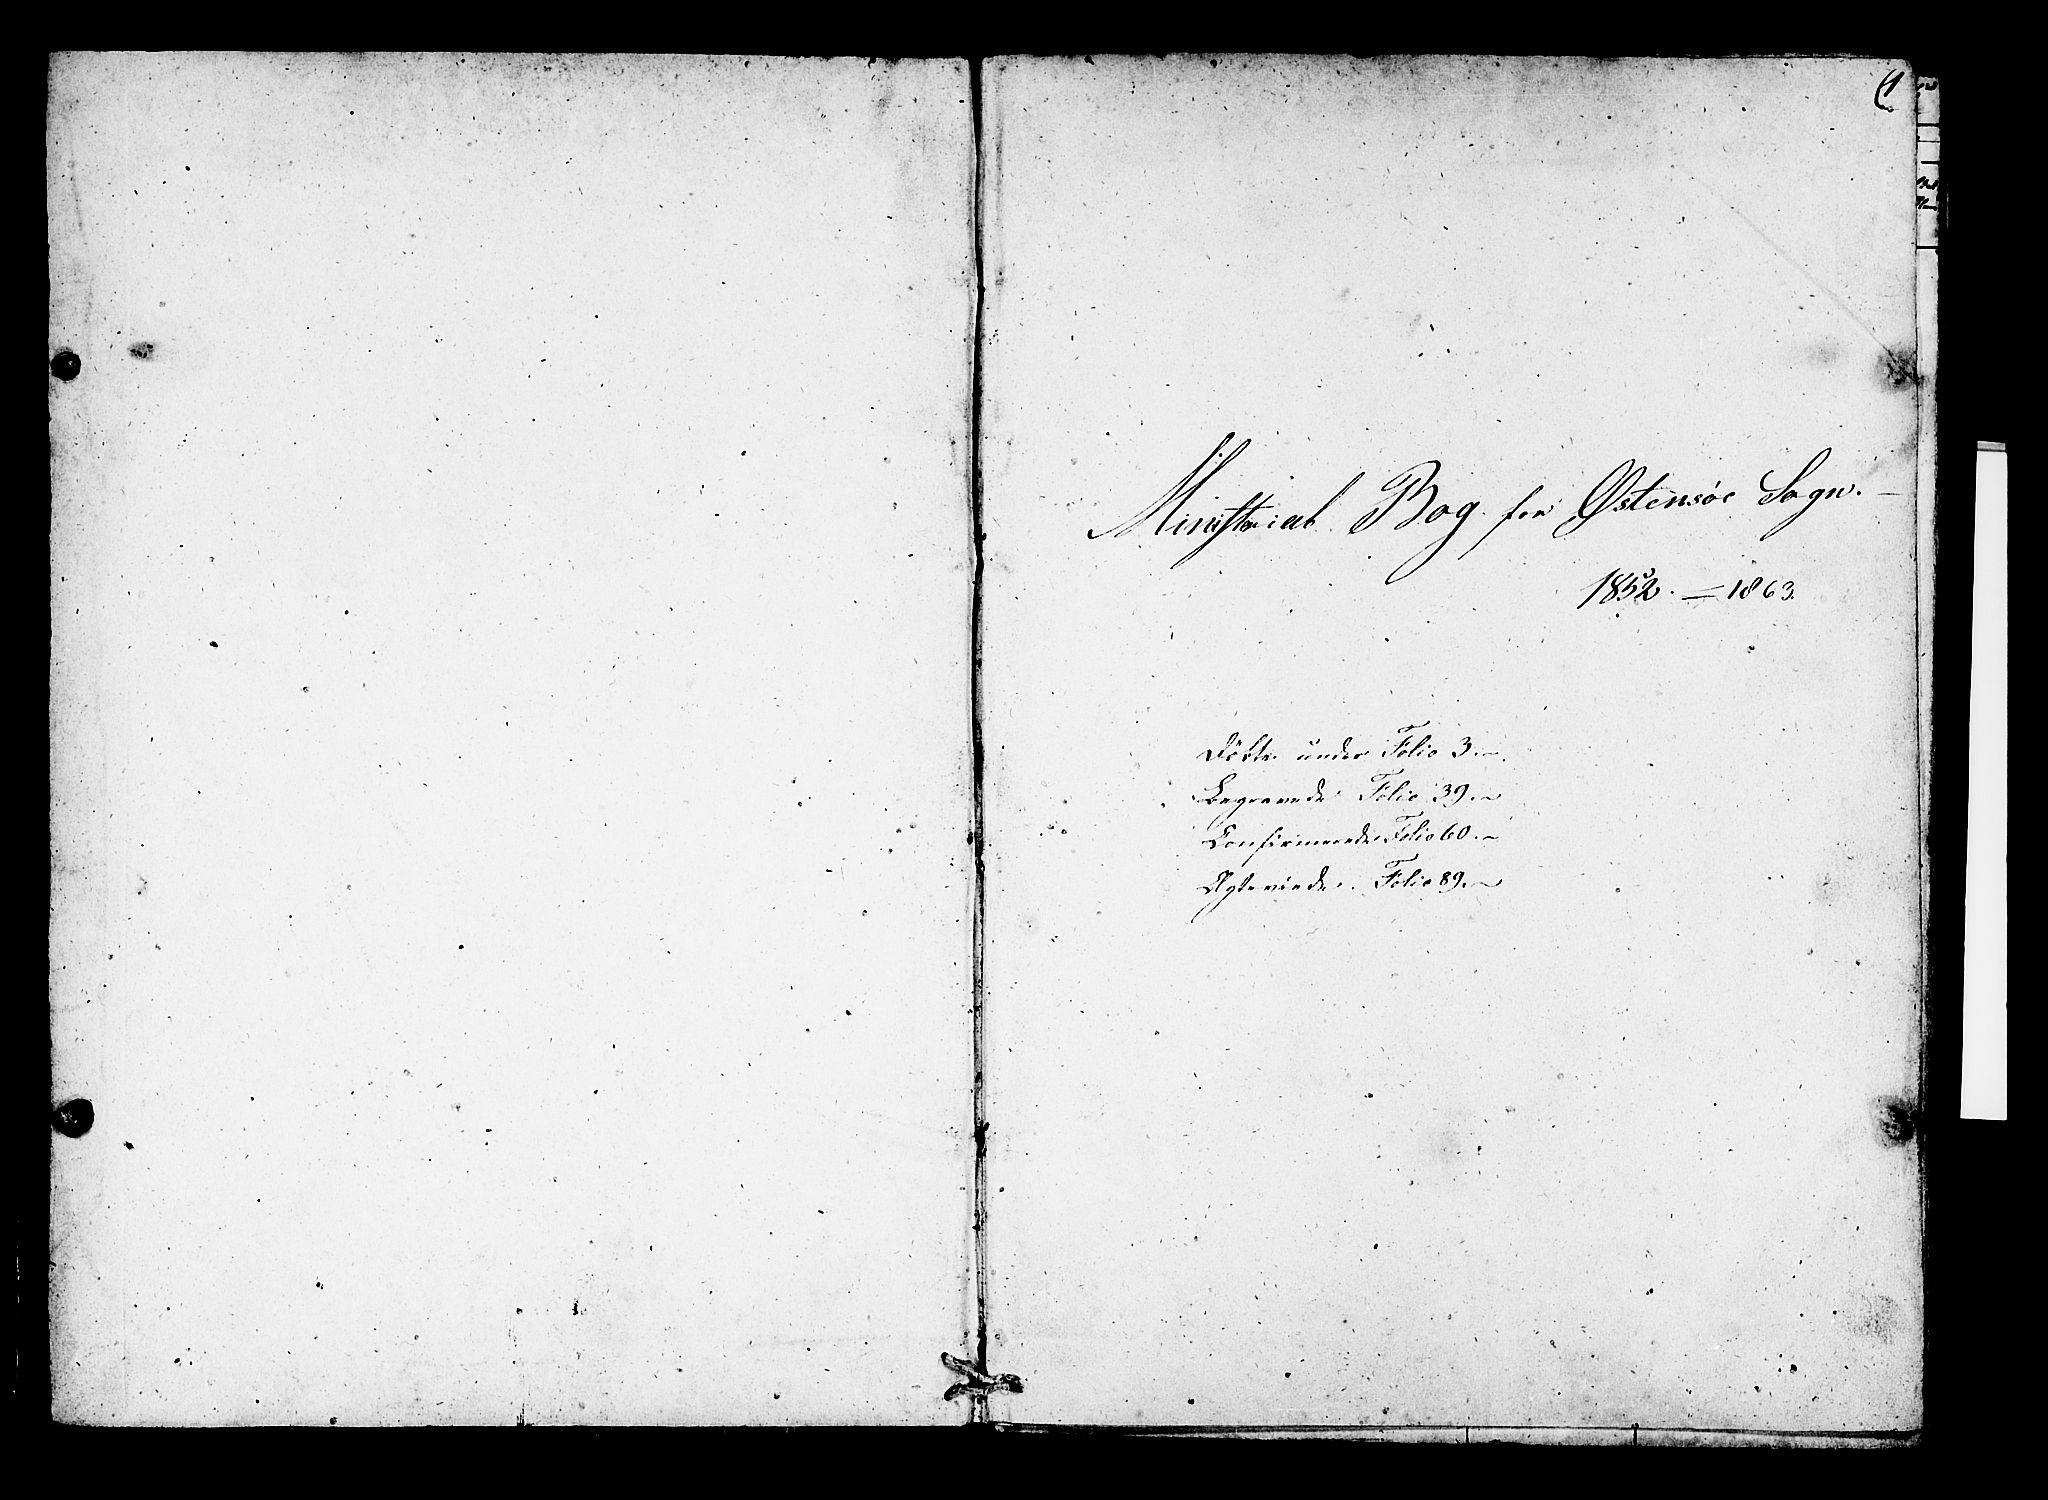 1
Ministerial Bog for Østensøe Sogn. —
1852. = 1863.
Döbte under Folio 3. ~
Begravede Folio 39. ~
Confirmerede Folio 60. ~
Ægteviede. Folio 89. ~